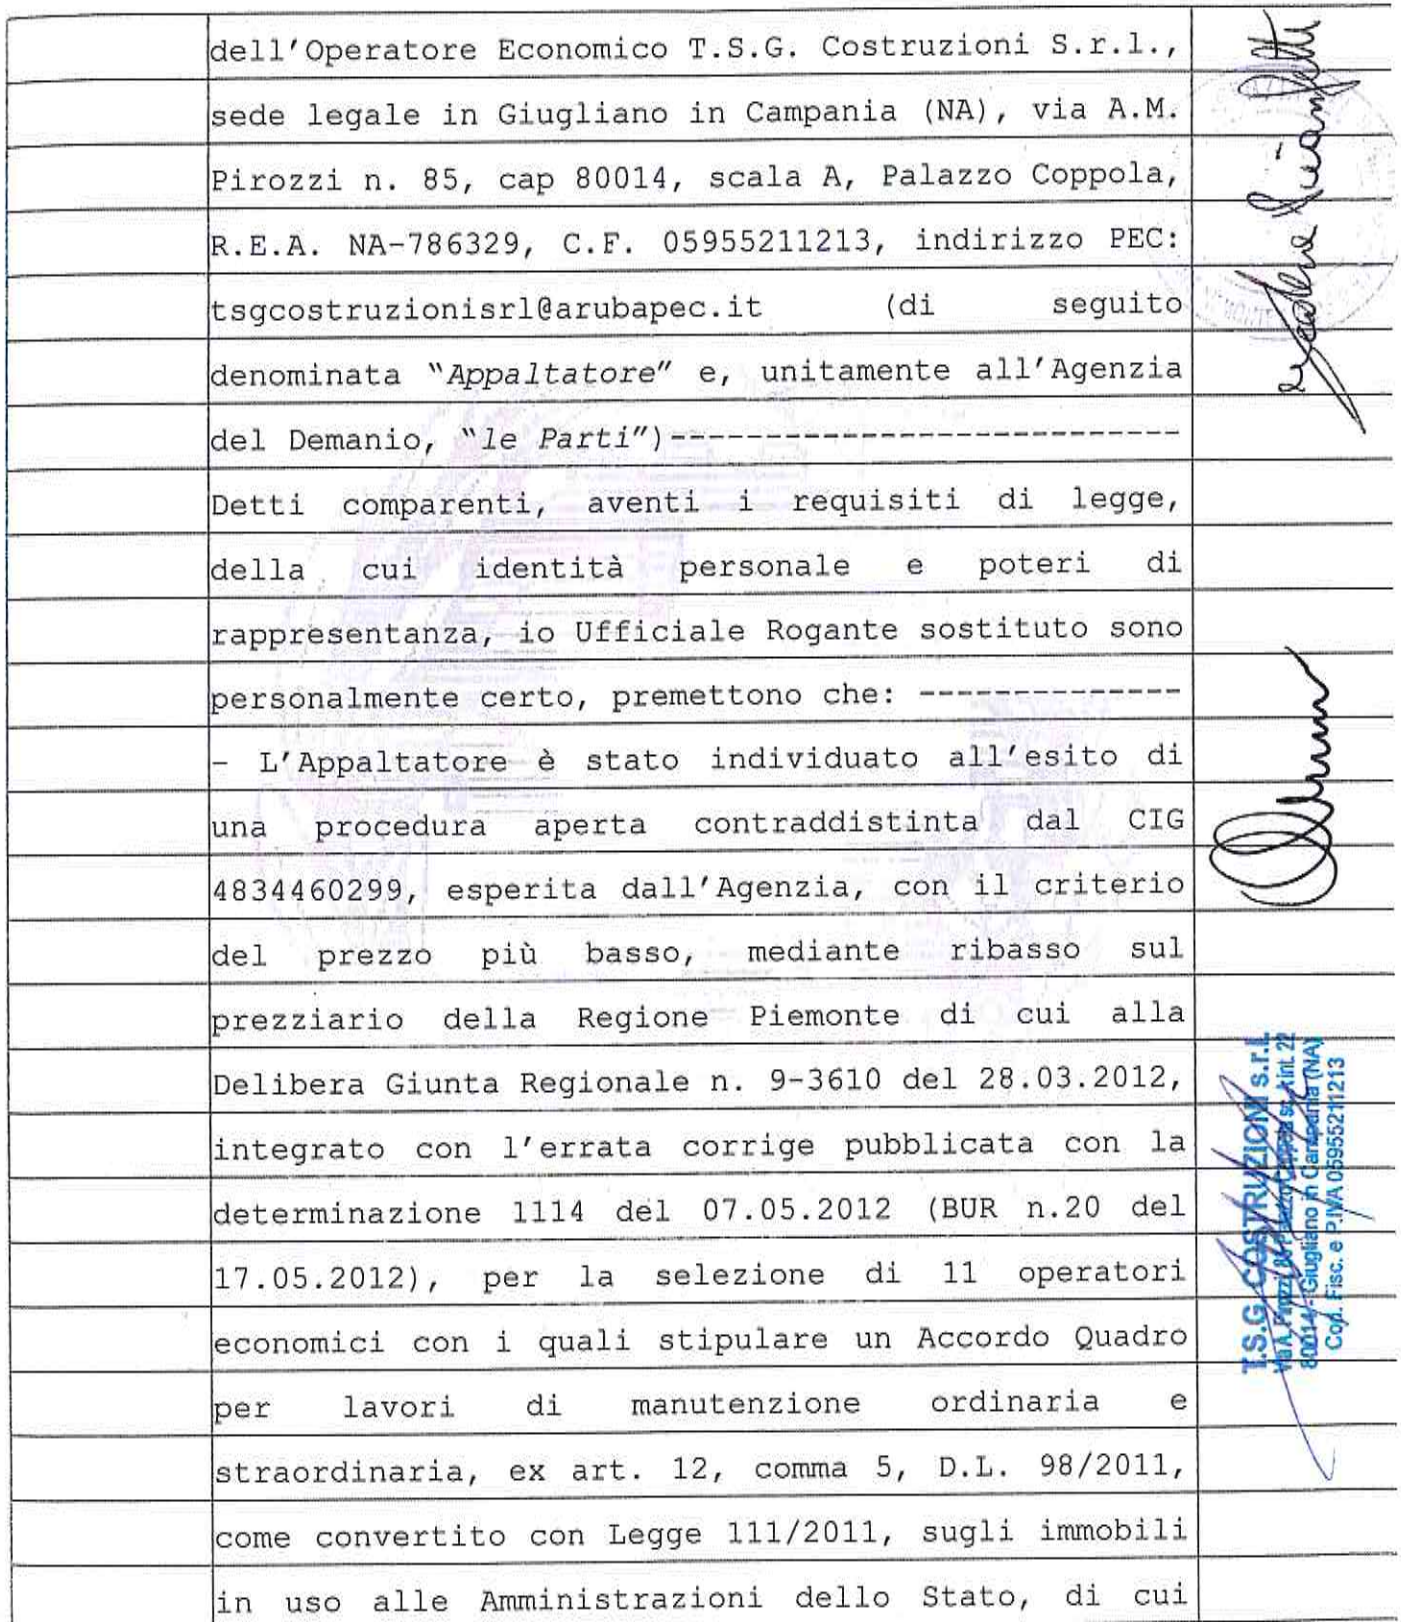 dell'Operatore Economico T.S.G. Costruzioni S.r.l.,
sede legale in Giugliano in Campania (NA), via A.M.
Pirozzi n. 85, cap 80014, scala A, Palazzo Coppola,
R.E.A. NA-786329, C.F. 05955211213, indirizzo PEC:
tsgcostruzionisrl@arubapec.it (di seguito
denominata "Appaltatore" e, unitamente all'Agenzia
del Demanio, "le Parti")---------------------------
Detti comparenti, aventi i requisiti di legge,
della cui identità personale e poteri di
rappresentanza, io Ufficiale Rogante sostituto sono
personalmente certo, premettono che: --------------
- L'Appaltatore è stato individuato all'esito di
una procedura aperta contraddistinta dal CIG
4834460299, esperita dall'Agenzia, con il criterio
del prezzo più basso, mediante ribasso sul
prezziario della Regione Piemonte di cui alla
Delibera Giunta Regionale n. 9-3610 del 28.03.2012,
integrato con l'errata corrige pubblicata con la
determinazione 1114 del 07.05.2012 (BUR n.20 del
17.05.2012), per la selezione di 11 operatori
economici con i quali stipulare un Accordo Quadro
per lavori di manutenzione ordinaria e
straordinaria, ex art. 12, comma 5, D.L. 98/2011,
come convertito con Legge 111/2011, sugli immobili
in uso alle Amministrazioni dello Stato, di cui
T.S.G. COSTRUZIONI S.r.l.
Via A. Pirozzi, 85 Palazzo sc. A int. 22
80014 - Giugliano in Campania (NA)
Cod. Fisc. e P.IVA 05955211213